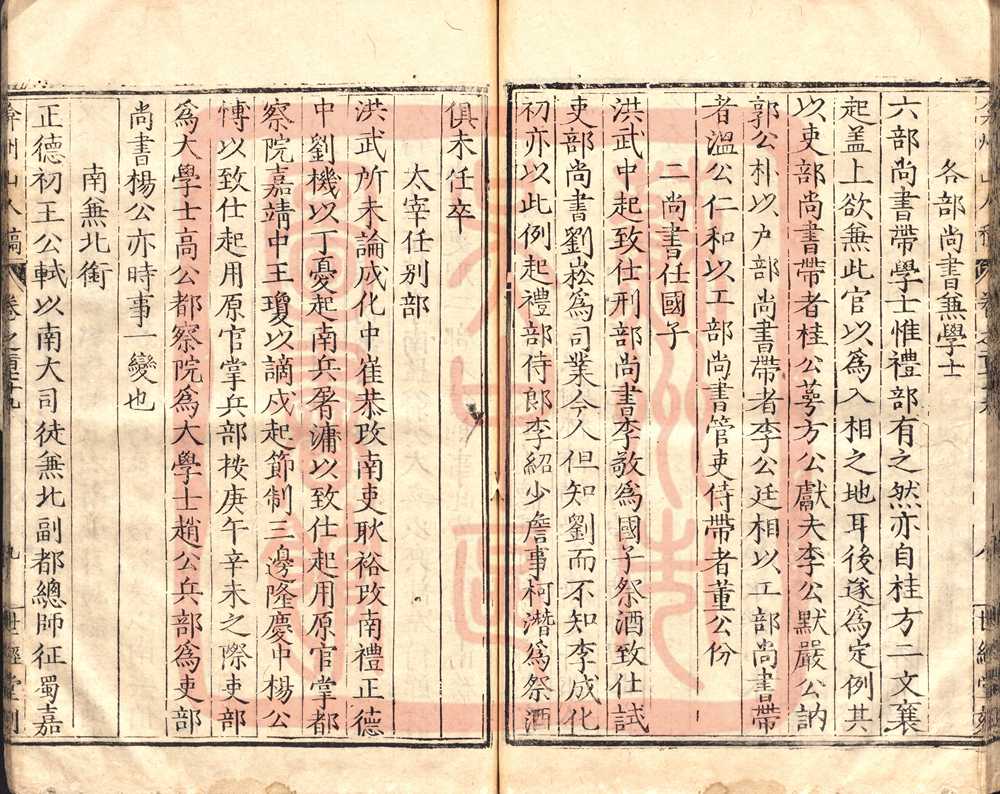 各部尚書兼學士
六部尚書帶學士惟禮部有之然亦自桂方二文襄
起盖上欲兼此官以爲入相之地耳後遂爲定例其
以吏部尚書帶者桂公萼方公獻夫李公默嚴公訥
郭公朴以户部尚書帶者李公廷相以工部尚書帶
者溫公仁和以工部尚書管吏侍帶者董公份
二尚書任國子
洪武中起致仕刑部尚書李敬爲國子祭酒致仕試
吏部尚書劉崧爲司業今人但知劉而不知李成化
初亦以此例起禮部侍郎李紹少詹事柯潛爲祭酒
俱未任卒
太宰任别部
洪武所未論成化中崔恭改南吏耿裕改南禮正德
中劉機以丁憂起南兵屠滽以致仕起用原官掌都
察院嘉靖中王瓊以謫戍起節制三邊隆慶中楊公
博以致仕起用原官掌兵部按庚午辛未之際吏部
爲大學士高公都察院爲大學士趙公兵部爲吏部
尚書楊公亦時事一變也
南兼北銜
正德初王公軾以南大司徒兼北副都總師征蜀嘉
弇州山人稿
卷之
九
世經堂刻